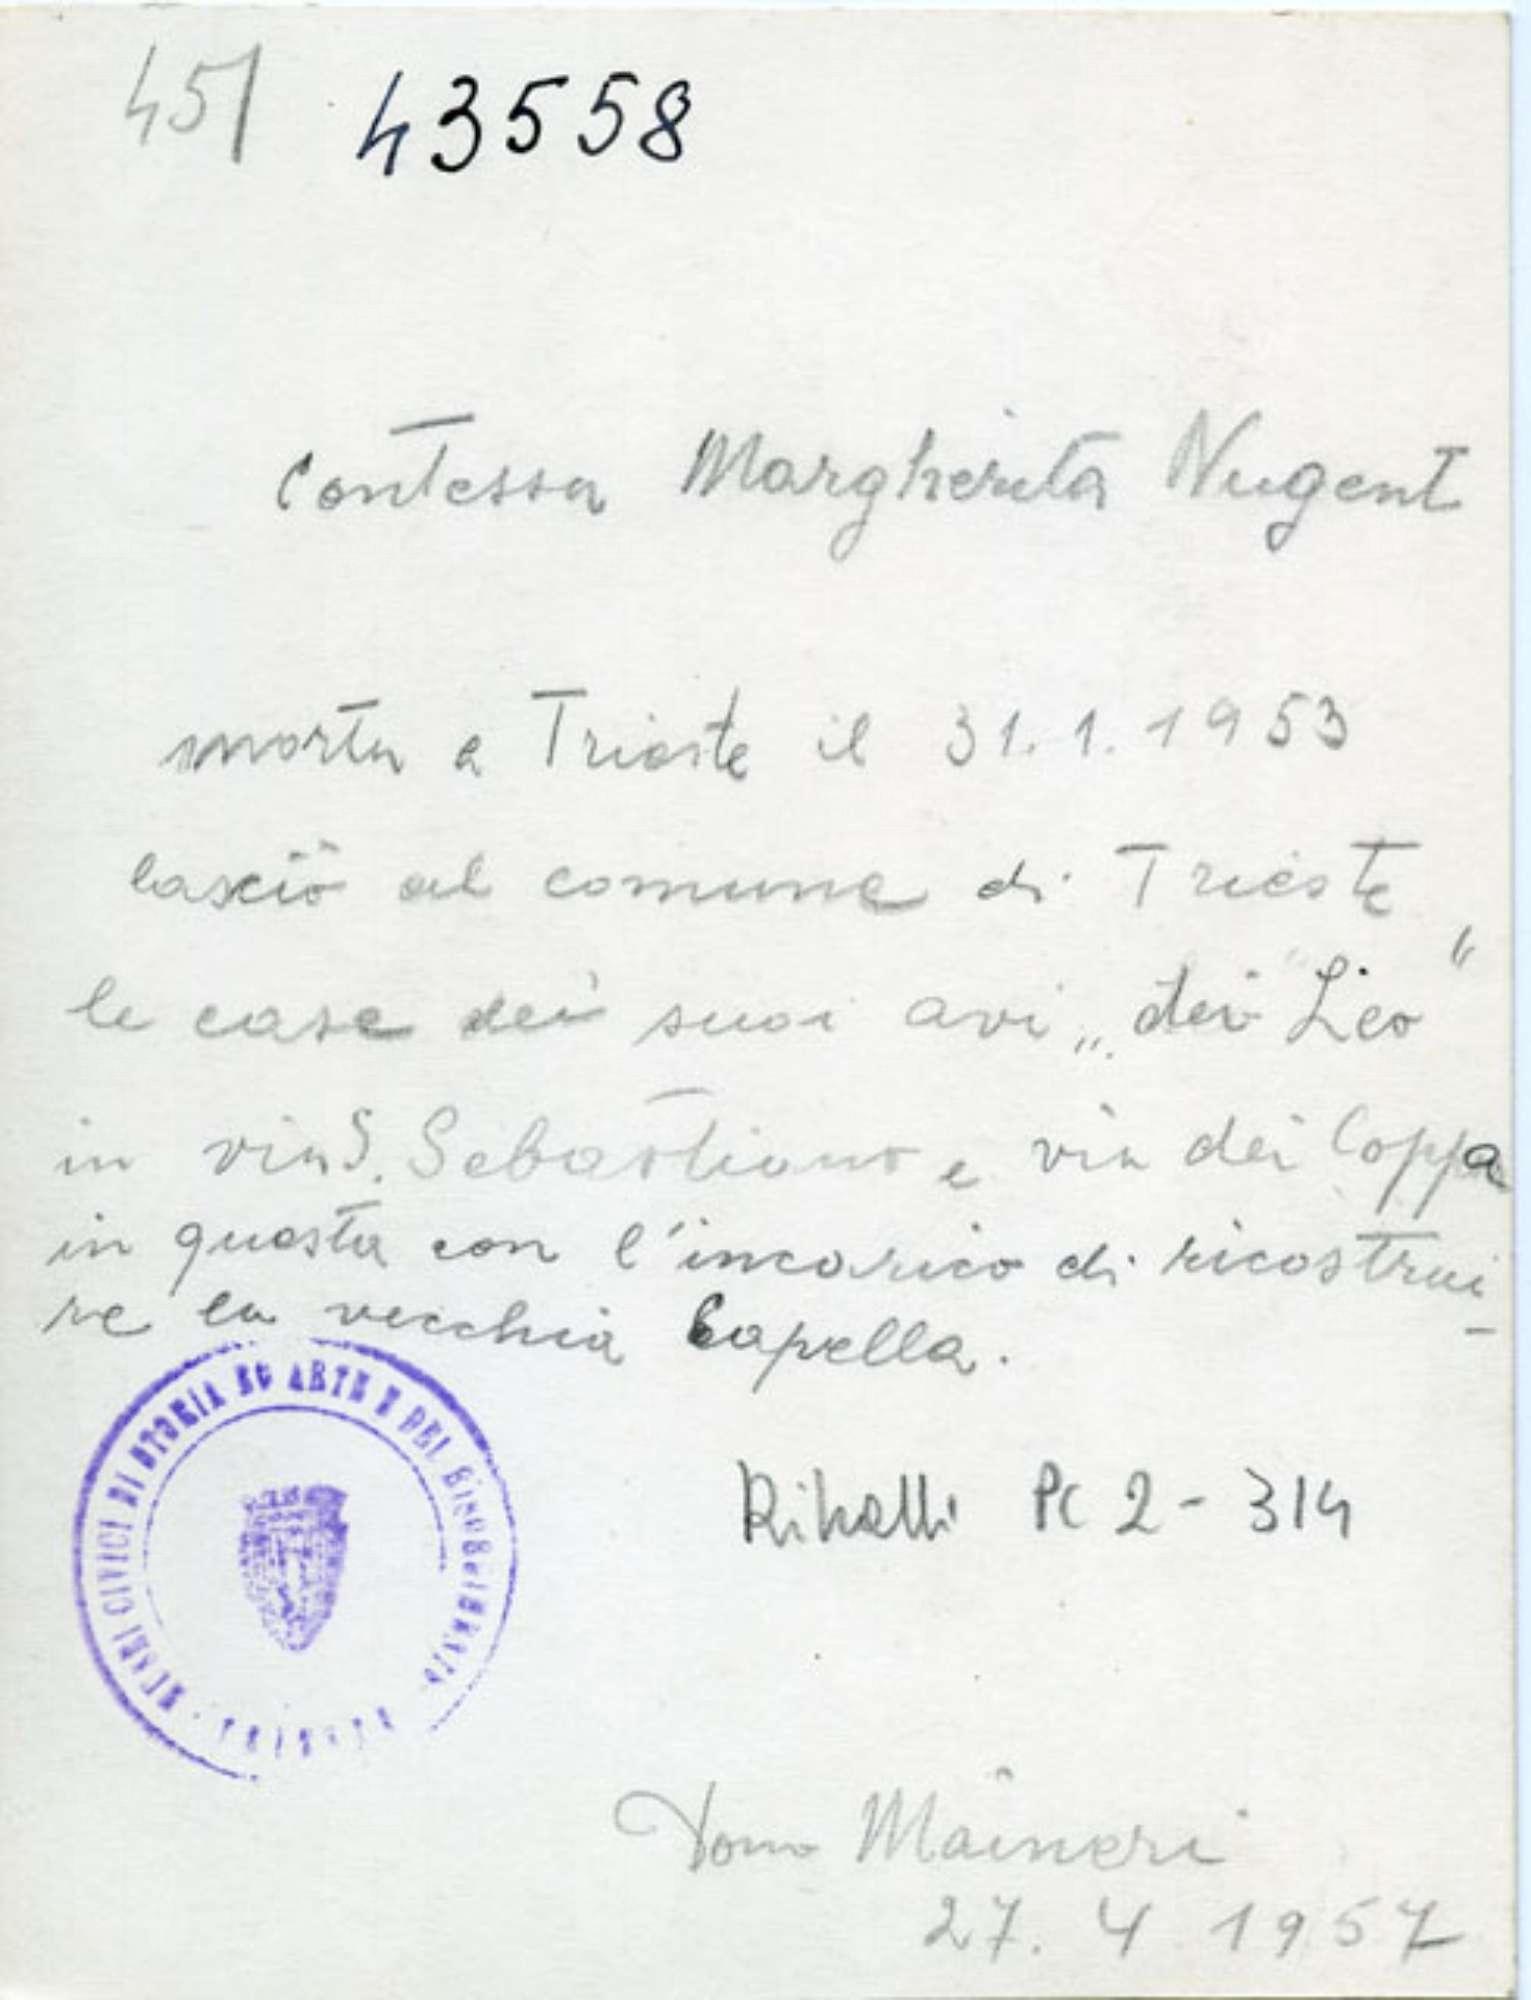 451 43558
Contessa Margherita Nugent
morta a Trieste il 31.1.1953
lasciò al comune di Trieste
le case dei suoi avi „dei Leo"
in via S. Sebastiano e via dei Coppa
in questa con l'incarico di ricostrui-
re la vecchia Capella.
MUSEI CIVICI DI STORIA ED ARTE E DEL RISORGIMENTO · TRIESTE
Pc 2-314
Dono Maineri
27.4.1957